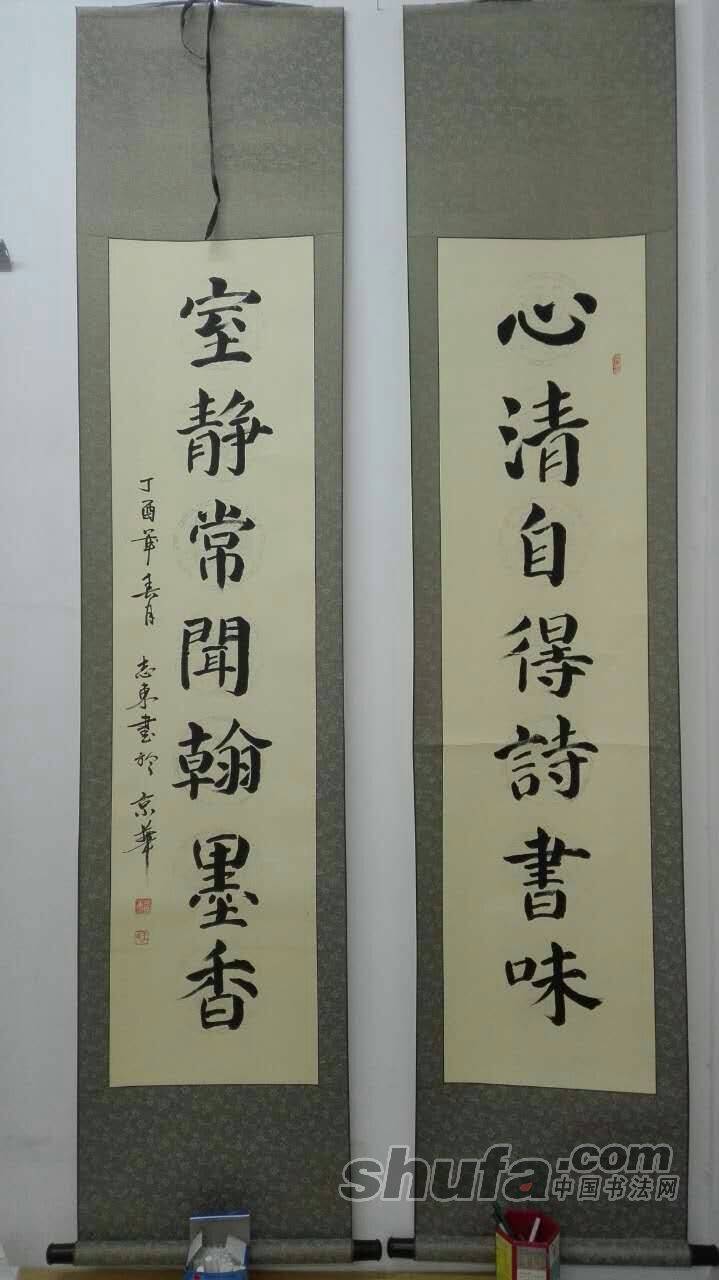 心清自得詩書味
室静常聞翰墨香
丁酉年春月 志東書於京華
shufa.com
中国书法网